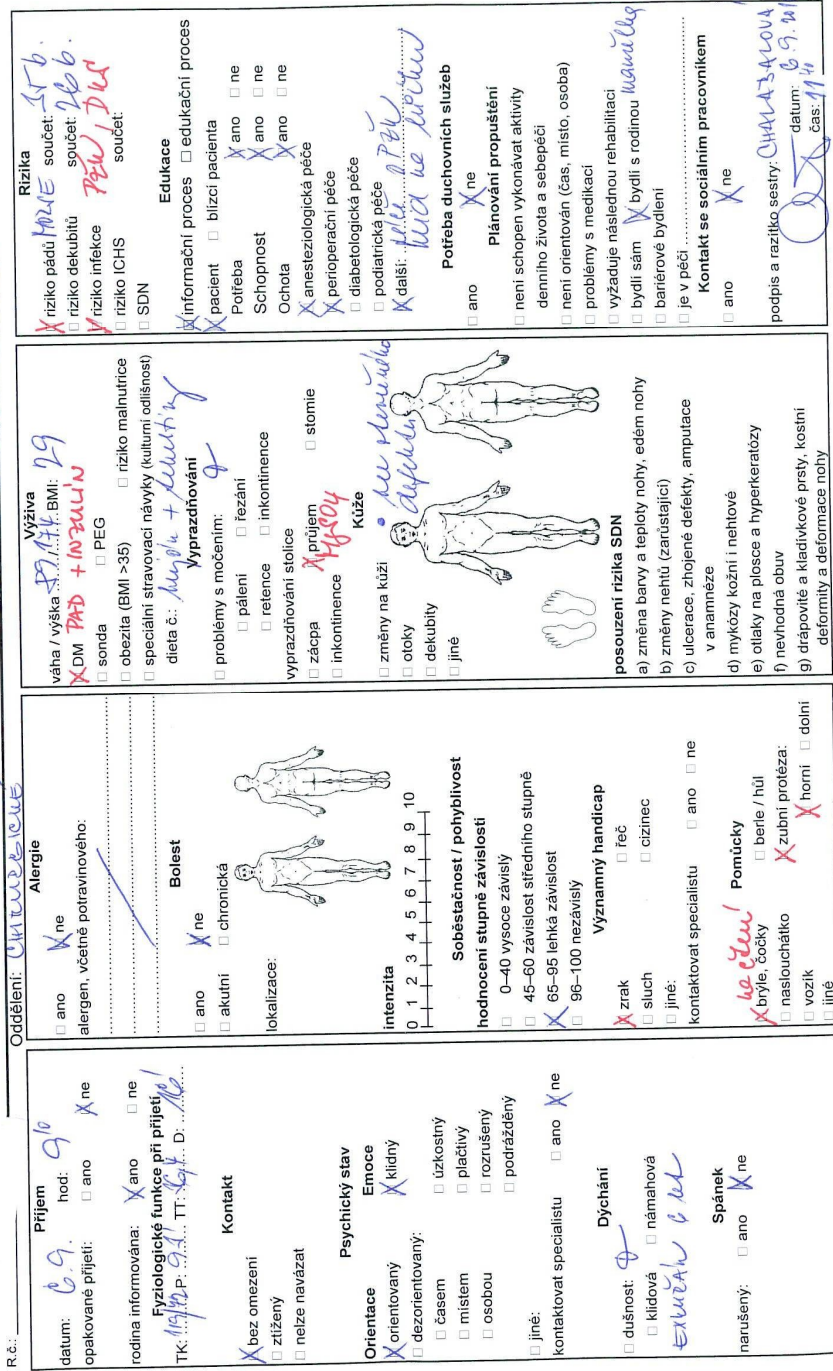 R.č.:
Oddělení: CHIRURGICKÉ
Příjem
datum: 6.9. hod: 9¹⁰
opakované přijetí: □ ano X ne
rodina informována: X ano □ ne
Fyziologické funkce při přijetí
TK: 119/72 P: 91' TT: 36,4 D: 16'
Kontakt
X bez omezení
□ ztížený
□ nelze navázat
Psychický stav
Orientace Emoce
X orientovaný X klidný
□ dezorientovaný: □ úzkostný
□ časem □ plačtivý
□ místem □ rozrušený
□ osobou □ podrážděný
□ jiné:
kontaktovat specialistu □ ano X ne
Dýchání
□ dušnost:
□ klidová □ námahová
EXKUŘÁK 6 let
Spánek
narušený: □ ano X ne
Alergie
□ ano X ne
alergen, včetně potravinového:
Bolest
□ ano X ne
□ akutní □ chronická
lokalizace:
intenzita
0 1 2 3 4 5 6 7 8 9 10
Soběstačnost / pohyblivost
hodnocení stupně závislosti
□ 0–40 vysoce závislý
□ 45–60 závislost středního stupně
X 65–95 lehká závislost
□ 96–100 nezávislý
Významný handicap
X zrak □ řeč
□ sluch □ cizinec
□ jiné:
kontaktovat specialistu □ ano □ ne
Pomůcky
na čtení
X brýle, čočky □ berle / hůl
□ naslouchátko X zubní protéza:
□ vozík X horní □ dolní
□ jiné
Výživa
váha / výška 89/174 BMI: 29
X DM PAD + INZULÍN
□ sonda □ PEG
□ obezita (BMI >35) □ riziko malnutrice
□ speciální stravovací návyky (kulturní odlišnost)
dieta č.: + tekutiny
Vyprazdňování
□ problémy s močením:
□ pálení □ řezání
□ retence □ inkontinence
vyprazdňování stolice
□ zácpa X průjem □ stomie
□ inkontinence MgSO4
Kůže
□ změny na kůži
□ otoky
□ dekubity defektu
□ jiné
posouzení rizika SDN
a) změna barvy a teploty nohy, edém nohy
b) změny nehtů (zarůstající)
c) ulcerace, zhojené defekty, amputace
v anamnéze
d) mykózy kožní i nehtové
e) otlaky na plosce a hyperkeratózy
f) nevhodná obuv
g) drápovité a kladívkové prsty, kostní
deformity a deformace nohy
Rizika
X riziko pádů MORSE součet: 35 b.
□ riziko dekubitů součet: 26 b.
X riziko infekce PŽK, DKS
□ riziko ICHS součet:
□ SDN
Edukace
X informační proces □ edukační proces
X pacient □ blízcí pacienta
Potřeba X ano □ ne
Schopnost X ano □ ne
Ochota X ano □ ne
X anesteziologická péče
X perioperační péče
□ diabetologická péče
□ podiatrická péče
X další: péče o PŽK
klid na lůžku
Potřeba duchovních služeb
□ ano X ne
Plánování propuštění
□ není schopen vykonávat aktivity
denního života a sebepéči
□ není orientován (čas, místo, osoba)
□ problémy s medikací
□ vyžaduje následnou rehabilitaci
□ bydlí sám X bydlí s rodinou manželka
□ bariérové bydlení
□ je v péči
Kontakt se sociálním pracovníkem
□ ano X ne
podpis a razítko sestry: CHALABALOVÁ
datum: 6.9.201
čas: 11⁴⁰